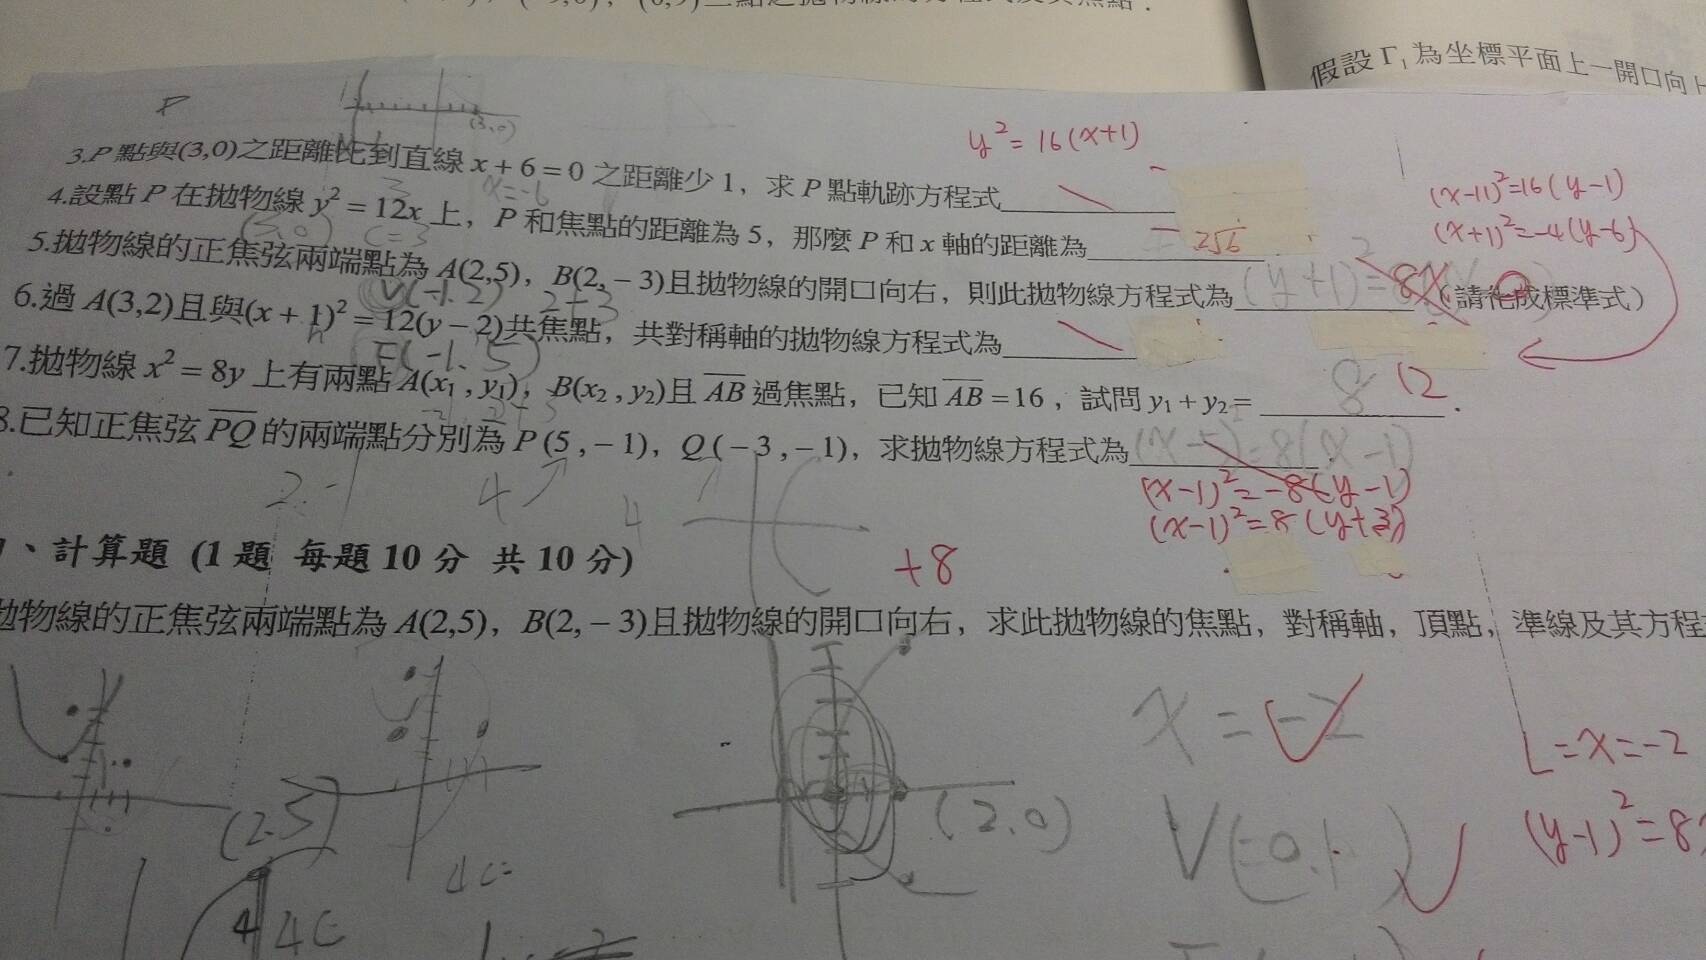 假設 Γ₁ 為坐標平面上一開口向上
P
(3,0)
y² = 16(x+1)
3.P 點與(3,0)之距離比到直線 x + 6 = 0 之距離少 1，求 P 點軌跡方程式__________
x=-6
(x-11)²=16(y-1)
(x+1)²=-4(y-6)
4.設點 P 在拋物線 y² = 12x 上，P 和焦點的距離為 5，那麼 P 和 x 軸的距離為__________
3
(3,0)
c=3
2√6
5.拋物線的正焦弦兩端點為 A(2,5)，B(2,－3)且拋物線的開口向右，則此拋物線方程式為__________（請化成標準式）
(y+1)²=8
V(-1.2)
2+3
6.過 A(3,2)且與(x + 1)² = 12(y－2)共焦點，共對稱軸的拋物線方程式為__________
F(-1.5)
7.拋物線 x² = 8y 上有兩點 A(x₁ , y₁)，B(x₂ , y₂)且 AB 過焦點，已知 AB = 16，試問 y₁ + y₂ = __________．
8
12
8.已知正焦弦 PQ 的兩端點分別為 P (5 ,－1)，Q (－3 ,－1)，求拋物線方程式為__________．
(x-5)²=8(x-1)
(x-1)²=-8(y-1)
(x-1)²=8(y+3)
2.-1
4
4
+8
、計算題 (1 題 每題 10 分 共 10 分)
拋物線的正焦弦兩端點為 A(2,5)，B(2,－3)且拋物線的開口向右，求此拋物線的焦點，對稱軸，頂點，準線及其方程
x=-2
L=x=-2
(2.5)
(2.0)
V(=0.1)
(y-1)²=8
4c=
4
4c